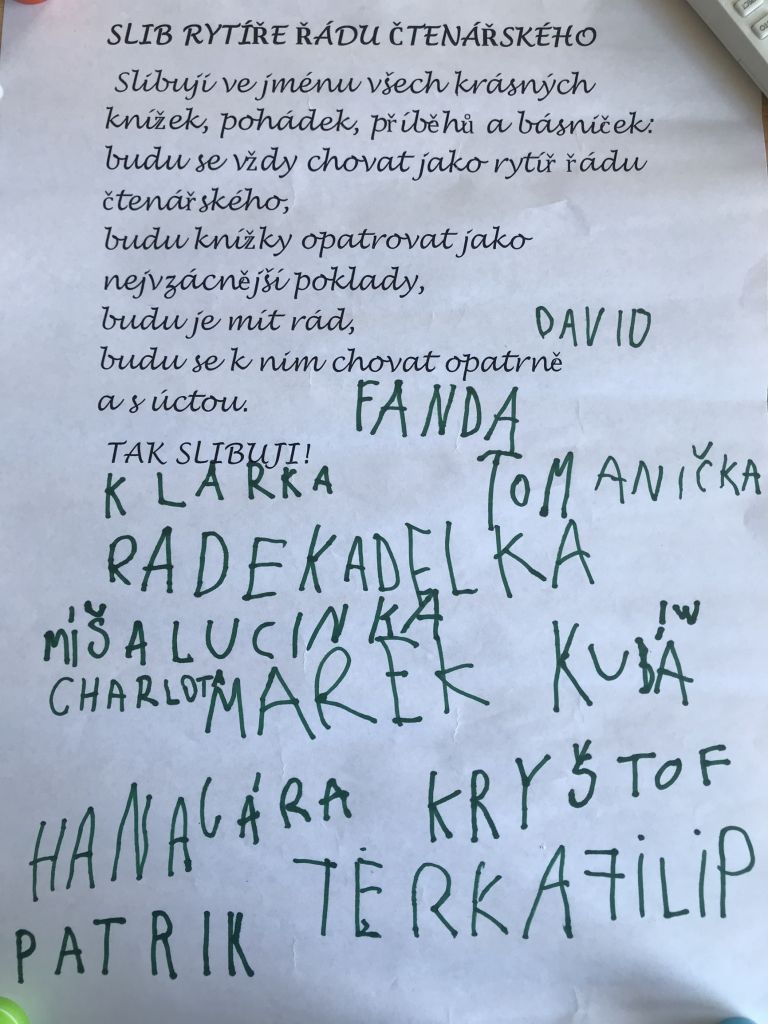 SLIB RYTÍŘE ŘÁDU ČTENÁŘSKÉHO
Slibuji ve jménu všech krásných
knížek, pohádek, příběhů a básniček:
budu se vždy chovat jako rytíř řádu
čtenářského,
budu knížky opatrovat jako
nejvzácnější poklady,
budu je mít rád,
DAVID
budu se k nim chovat opatrně
a s úctou.
FANDA
TAK SLIBUJI!
KLARKA TOM ANIČKA
RADEK ADELKA
MÍŠA LUCINKA
CHARLOTA MAREK KUBA
HANA LÁRA KRYŠTOF
TERKA FILIP
PATRIK